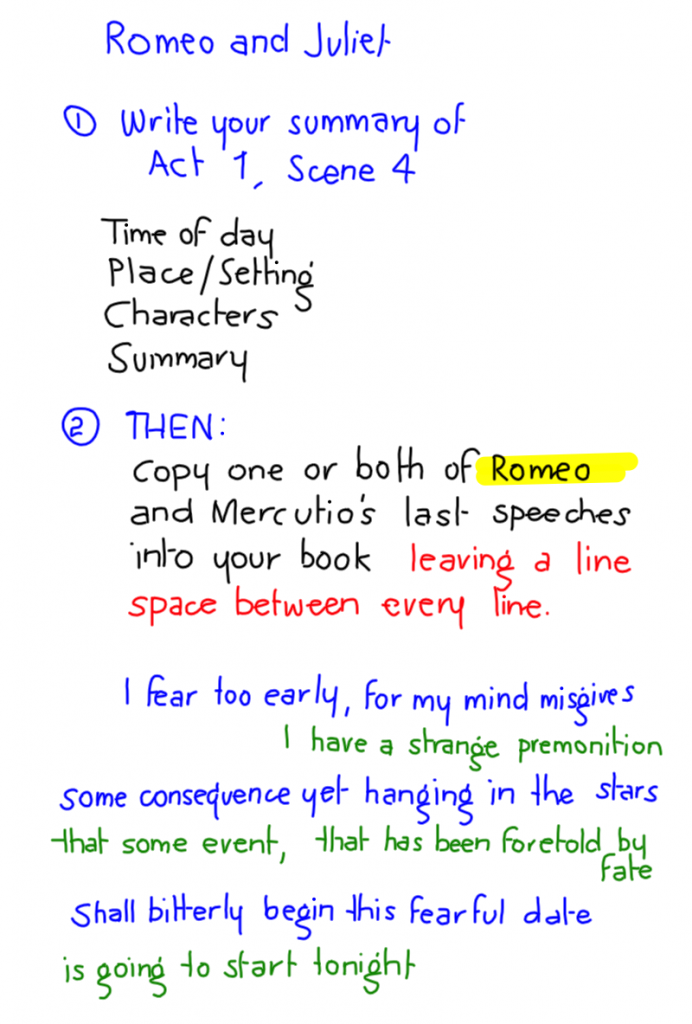 Romeo and Juliet
① Write your summary of
Act 1, Scene 4
Time of day
Place/Setting
Characters
Summary
② THEN:
Copy one or both of Romeo
and Mercutio's last speeches
into your book leaving a line
space between every line.
I fear too early, for my mind misgives
I have a strange premonition
some consequence yet hanging in the stars
that some event, that has been foretold by
fate
Shall bitterly begin this fearful date
is going to start tonight